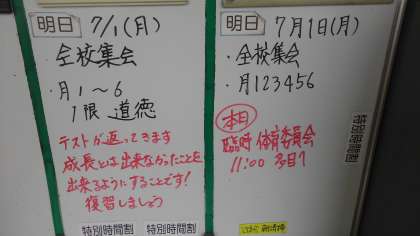 明日 7/1(月)
全校集会
・月1～6
1限 道徳
テストが返ってきます
成長とは出来なかったことを
出来るようにすることです!
復習しましょう
特別時間割 特別時間割
明日 7月1日(月)
・全校集会
・月123456
本日
臨時 体育委員会
11:00 多目1
特別時間割